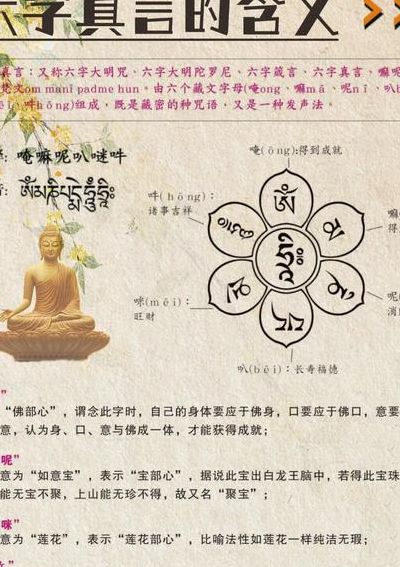 六字真言的含义
真言：又称六字大明咒、六字大明陀罗尼、六字箴言、六字真言、嘛呢
梵文om mani padme hun。由六个藏文字母(唵ong、嘛mā、呢nī、叭b
ēi、吽hōng)组成，既是藏密的种咒语，又是一种发声法。
唵嘛呢叭谜吽
ཨོཾ་མ་ཎི་པདྨེ་ཧཱུྃ་ཧྲཱིཿ
唵(ōng):得到成就
吽(hōng):
诸事吉祥
嘛
得
咪(mēi):
旺财
呢
消
叭(bēi):长寿福德
”
“佛部心”，谓念此字时，自己的身体要应于佛身，口要应于佛口，意要
意，认为身、口、意与佛成一体，才能获得成就；
呢”
意为“如意宝”，表示“宝部心”，据说此宝出自龙王脑中，若得此宝珠
能无宝不聚，上山能无珍不得，故又名“聚宝”；
咪”
意为“莲花”，表示“莲花部心”，比喻法性如莲花一样纯洁无瑕；